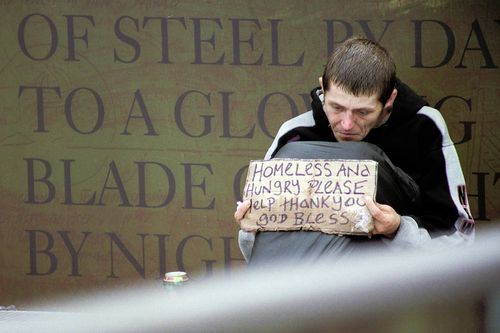 OF STEEL BY DA
TO A GLOWING
BLADE
BY NIGH
HOMELESS AND
HUNGRY PLEASE
HELP THANK YOU
GOD BLESS